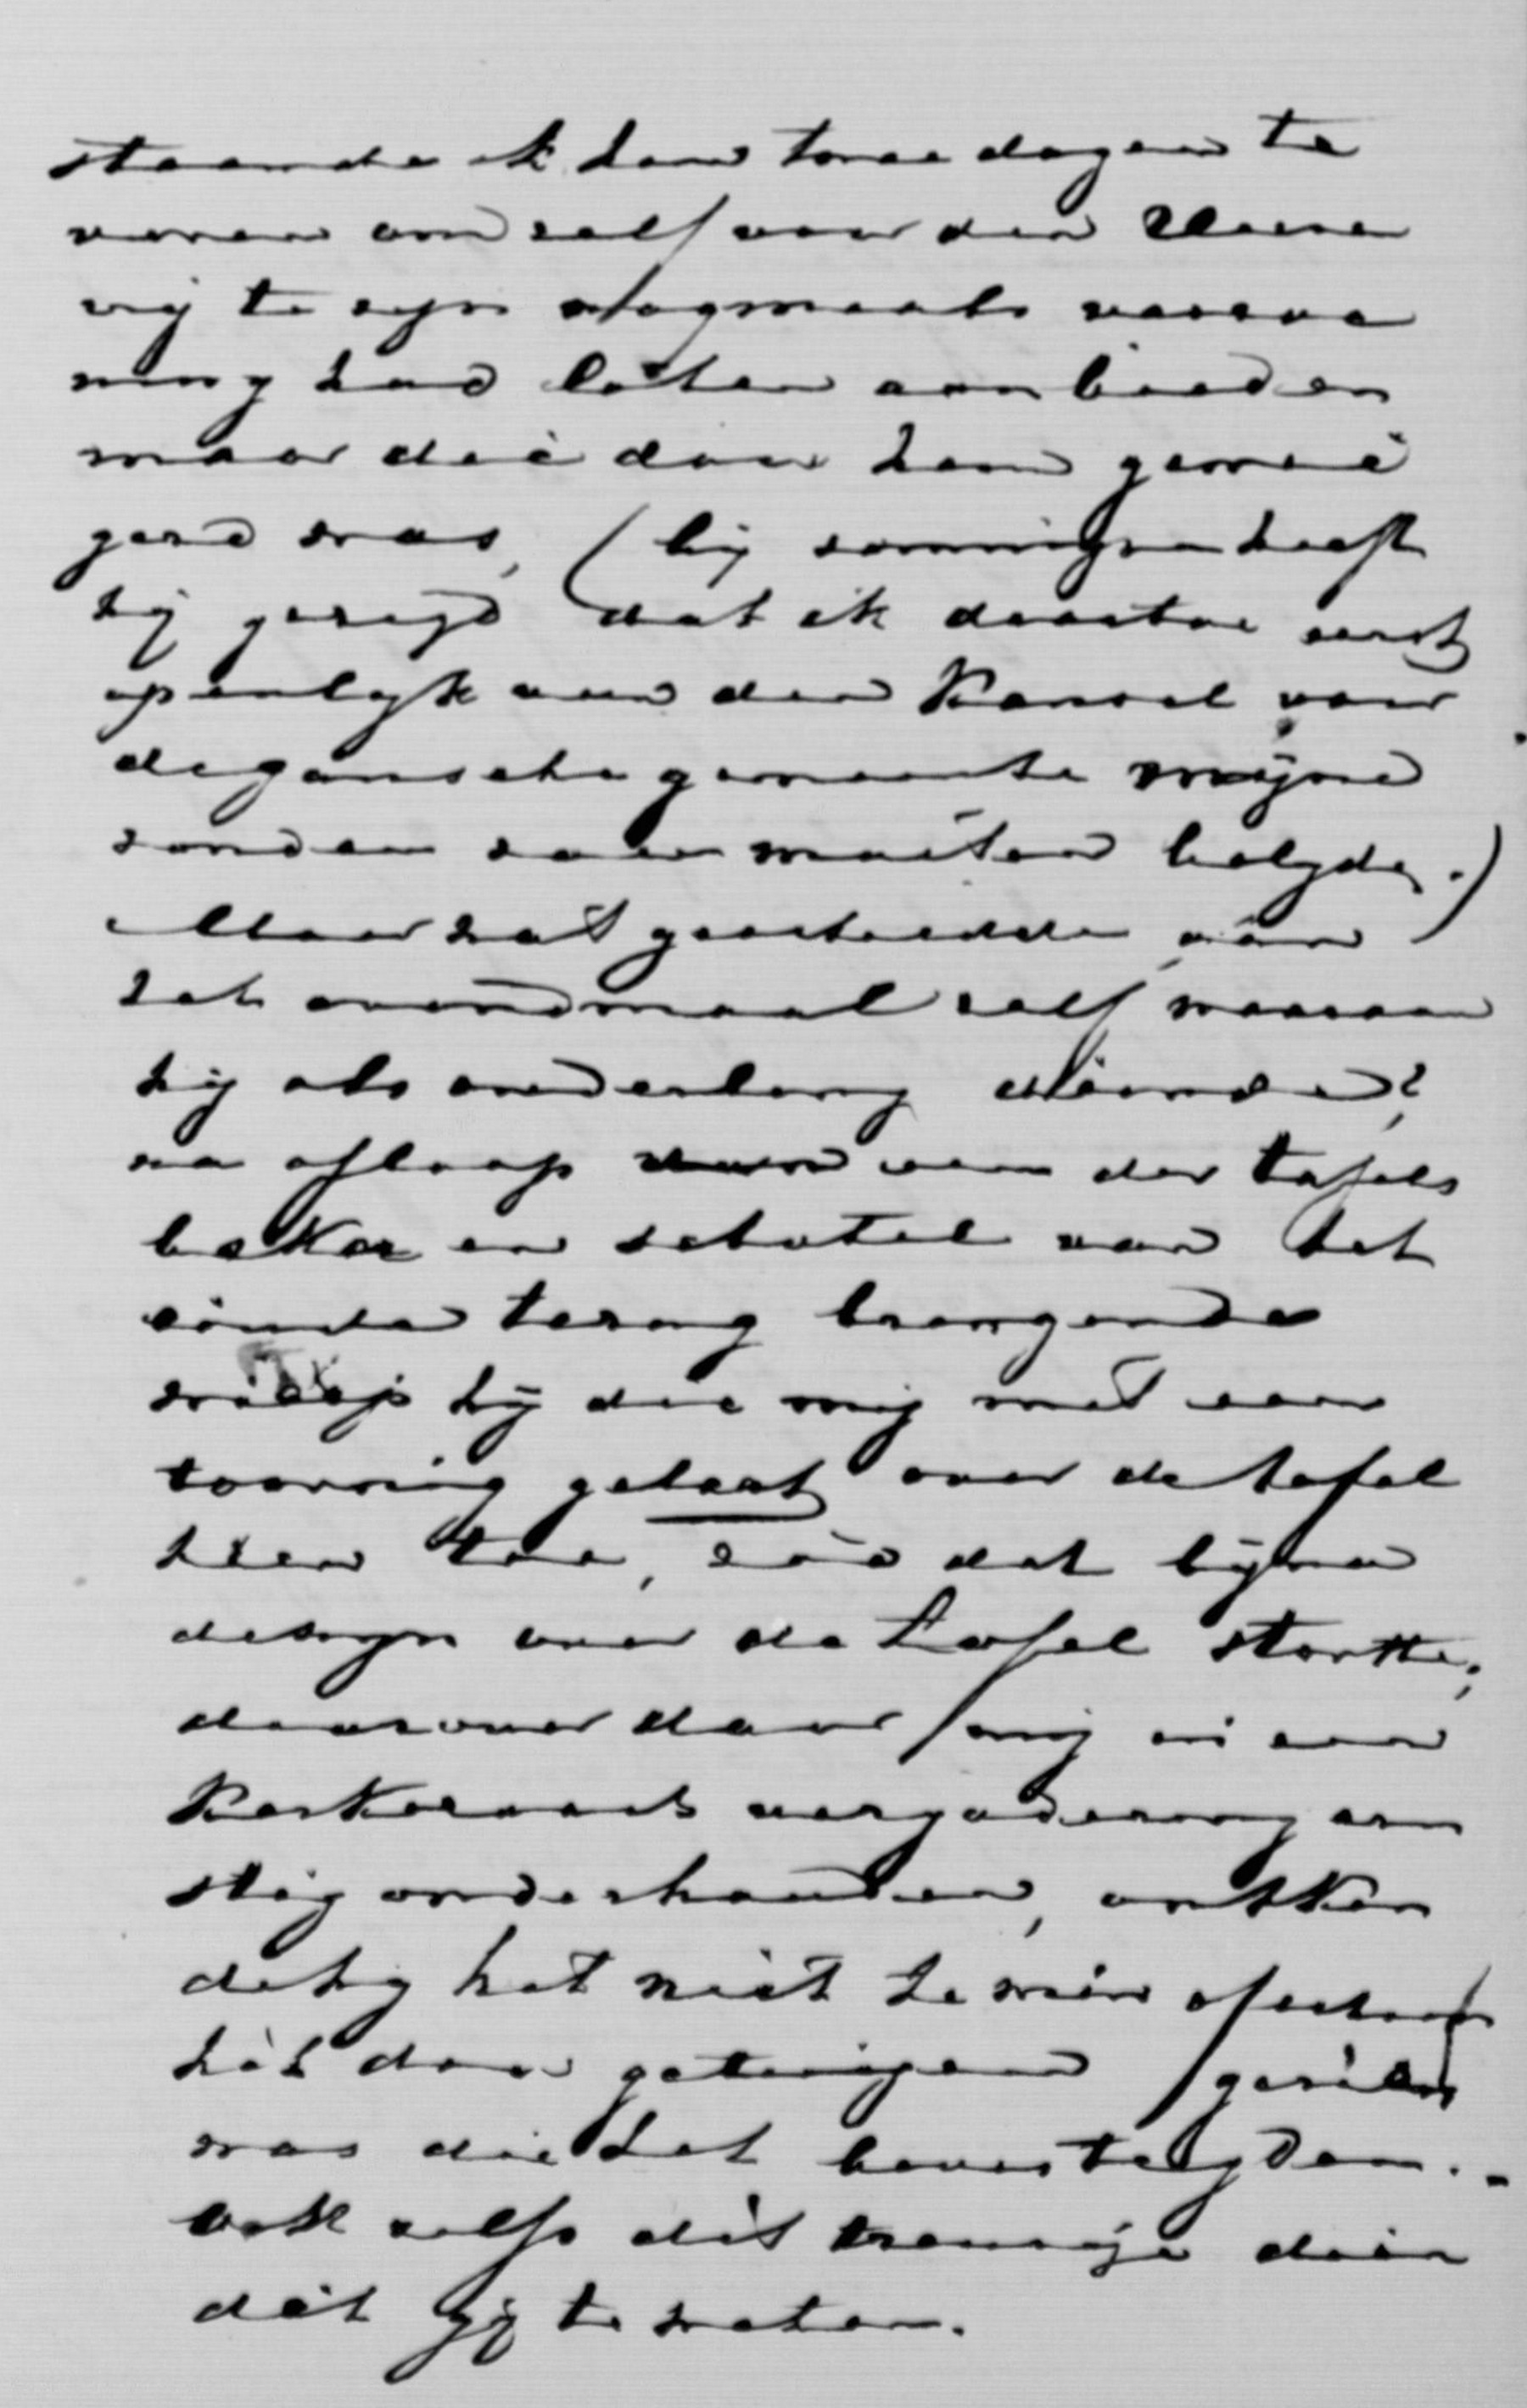 staande ik hem twee dagen te
voren om zelf voor den Heere
vrij te zijn nogmaals verzoe
ning had laten aanbieden
maar die door hem gewei
gerd was, (bij sommigen heeft
hij gezegd dat ik daartoe eerst
openlijk van den Kansel voor
de gansche gemeente mijne
zonden zou moeten belijden.)
Maar wat geschiedde aan
het avondmaal zelf waaraan
hij als ouderling diende?
na afloop van een der tafels
beker en schotel van het
einde terug brengende
wierp hij die mij met een
toornig gelaat over de tafel
heen toe, zóó dat bijna
de wijn over de tafel stortte;
daarover door mij in een
Kerkeraads vergadering ern
stig onderhouden, ontken
de hij het niet te min ofschoon
het door getuigen gezien
was die het bevestigden.
Ook zelfs dit treurige dien
dit gij te weten.